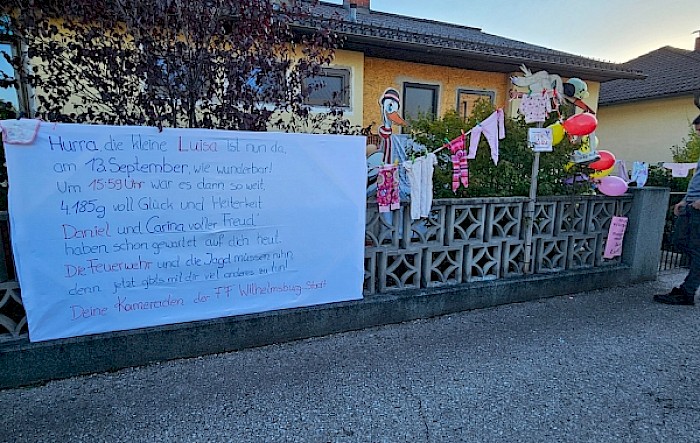 Hurra, die kleine Luisa ist nun da,
am 13. September, wie wunderbar!
Um 15:59 Uhr war es dann so weit,
4.185g voll Glück und Heiterkeit.
Daniel und Carina voller Freud'
haben schon gewartet auf dich heut.
Die Feuerwehr und die Jagd müssen ruhn,
denn jetzt gibts mit dir viel anderes zu tun!
Deine Kameraden der FF Wilhelmsburg-Stadt